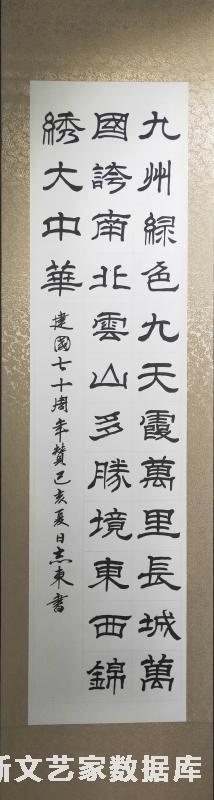 九州緑色九天霞萬里長城萬
國誇南北雲山多勝境東西錦
綉大中華
建國七十周年贊己亥夏日志東書
新文艺家数据库